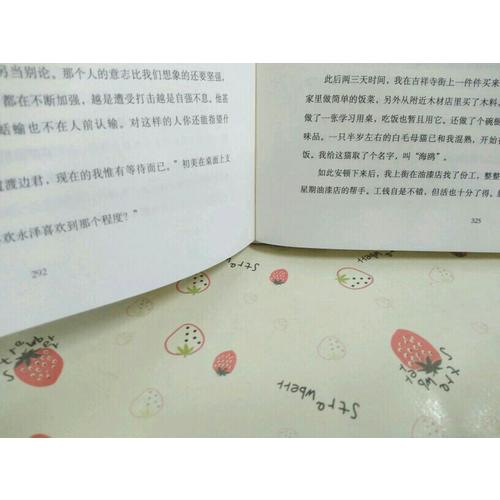 另当别论。那个人的意志比我们想象的还要坚强。
都在不断加强，越是遭受打击越是自强不息。他甚
蛞蝓也不在人前认输。对这样的人你还能指望什
渡边君，现在的我惟有等待而已。”初美在桌面上支
欢永泽喜欢到那个程度？”
292
此后两三天时间，我在吉祥寺街上一件件买来
家里做简单的饭菜。另外从附近木材店里买了木料
做了一张学习用桌，吃饭也暂且用它。还做了个碗橱
味品。一只半岁左右的白毛母猫已和我混熟，开始在
饭。我给这猫取了个名字，叫“海鸥”。
如此安顿下来后，我上街在油漆店找了份工，整整
星期油漆店的帮手。工钱自是不错，但活也十分了得。
325
Strawberry
Strawberr
Strawberr
Strawberr